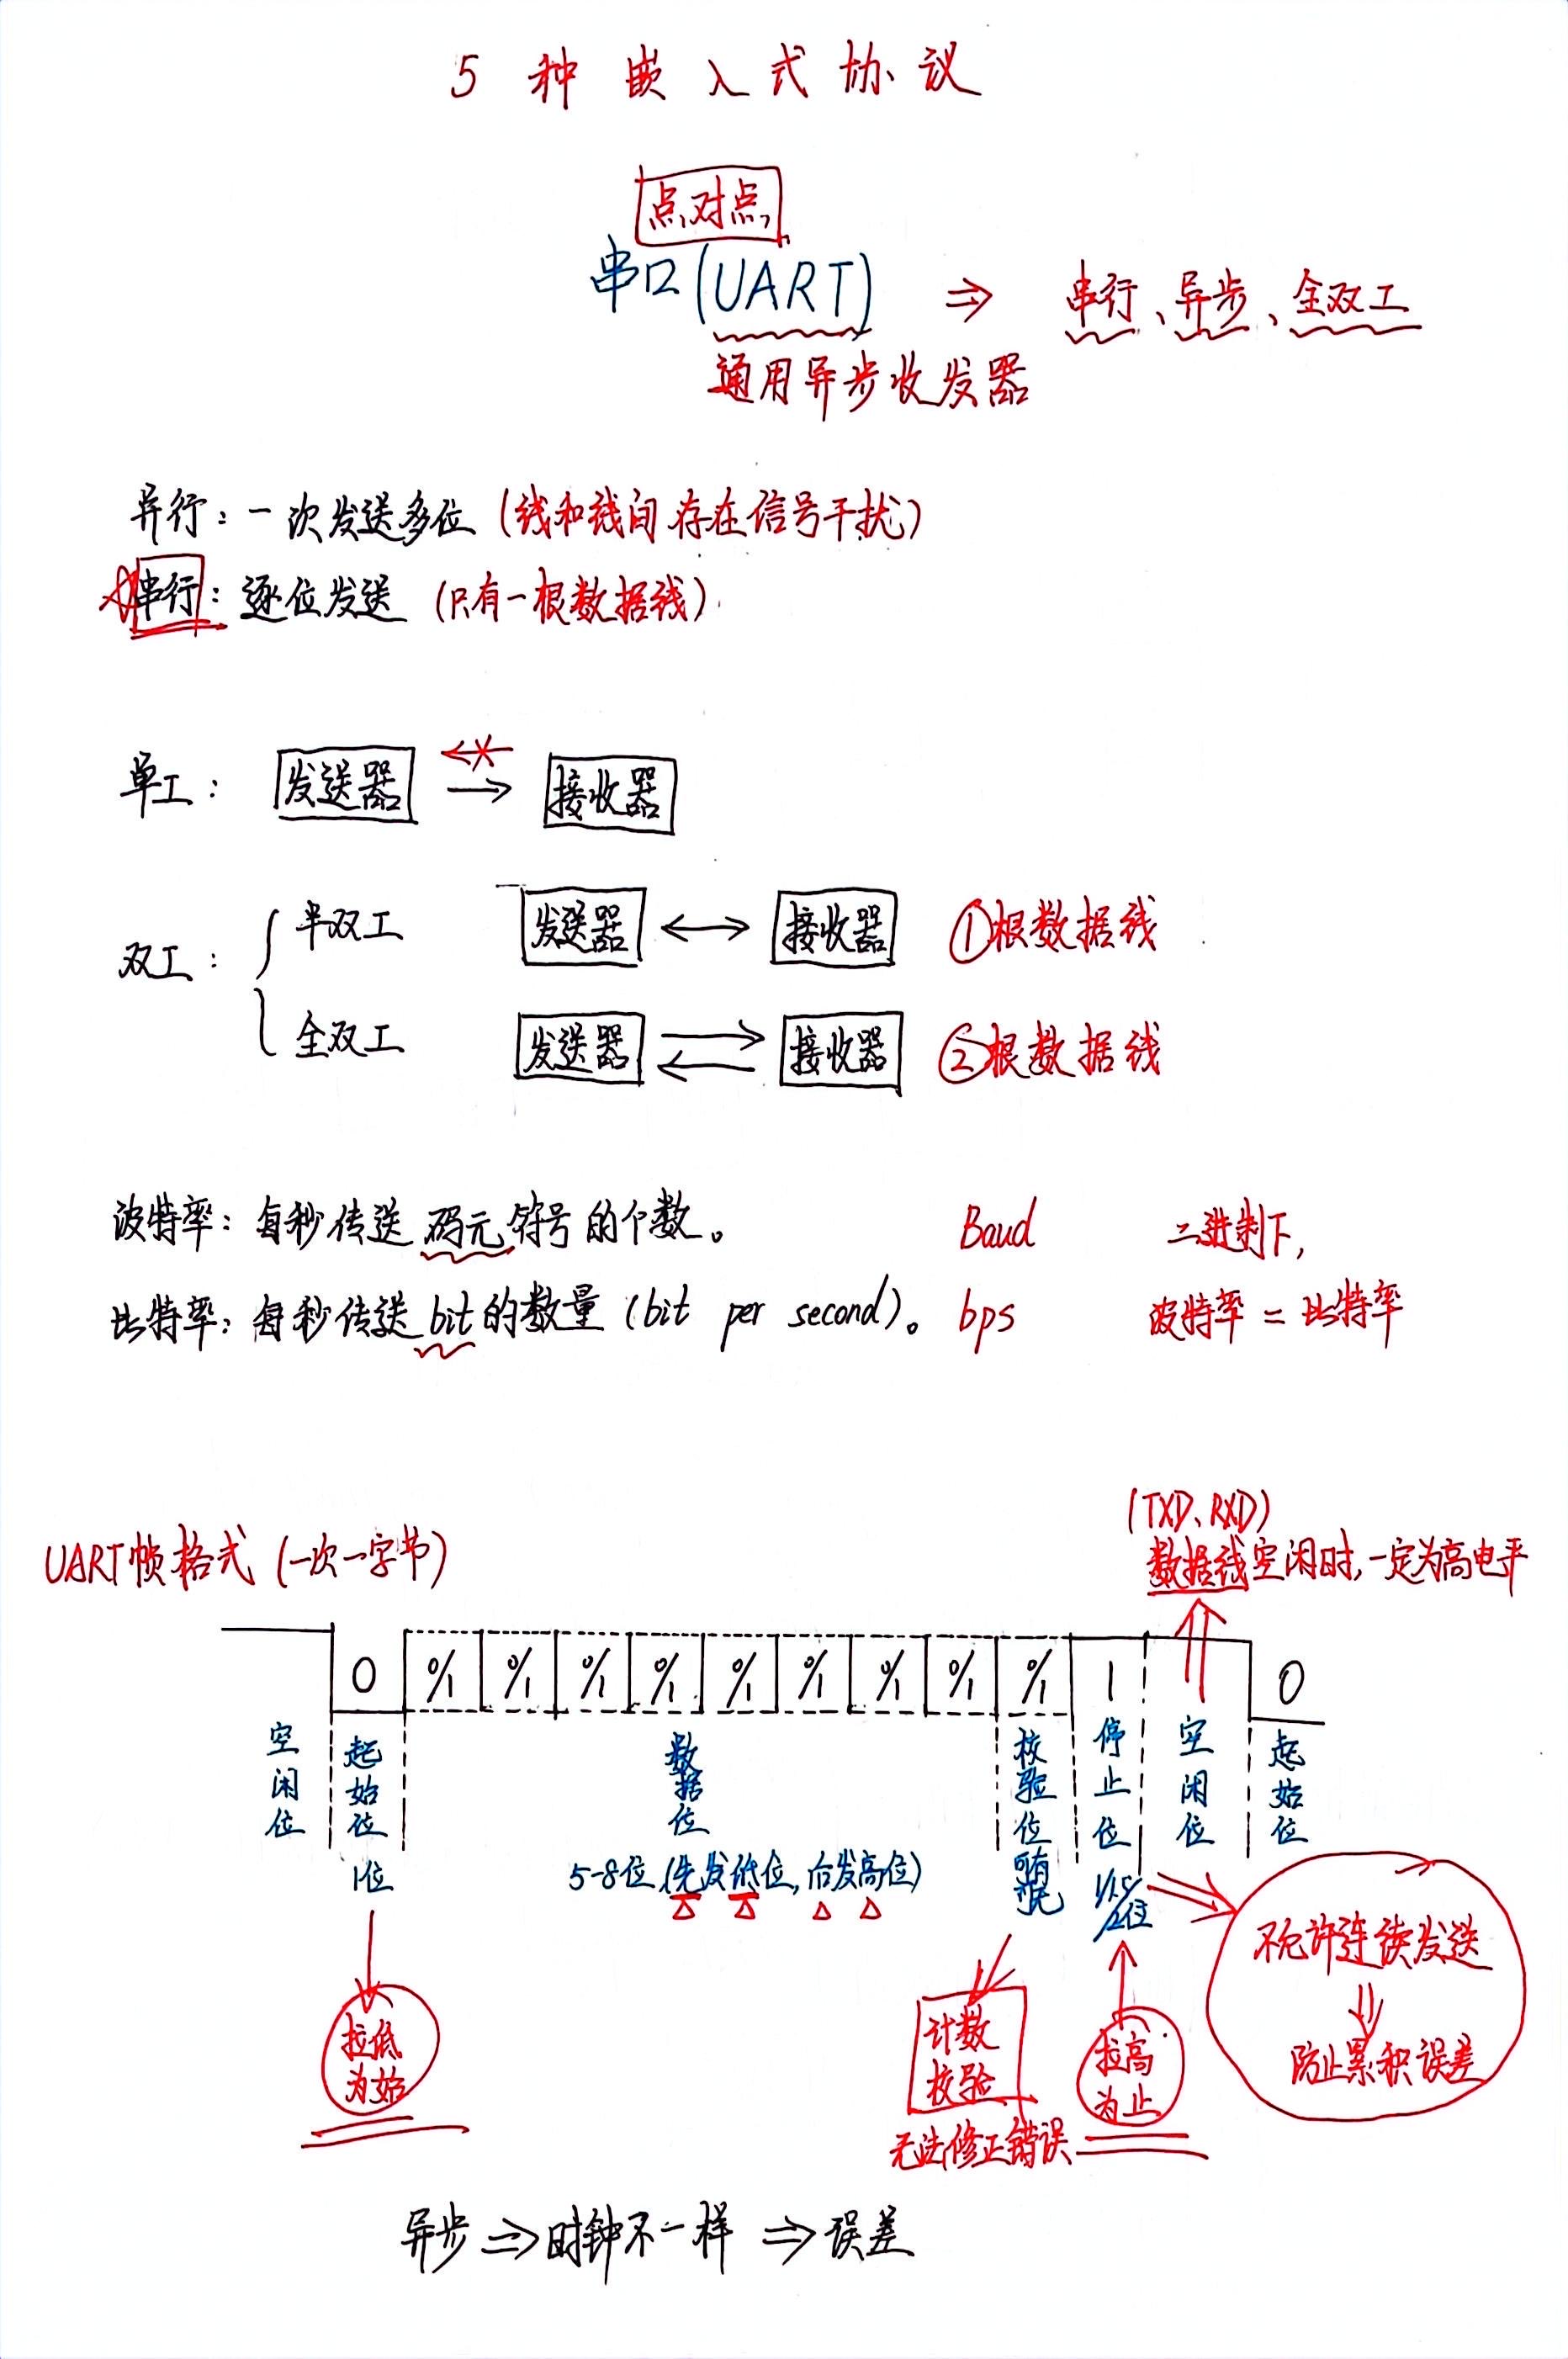 5 种 嵌 入 式 协 议
点对点
串口(UART) ⇒ 串行、异步、全双工
通用异步收发器
异行：一次发送多位 (线和线间存在信号干扰)
串行：逐位发送 (只有一根数据线)
单工： 发送器 → 接收器
双工：
半双工 发送器 ↔ 接收器 ①根数据线
全双工 发送器 接收器 ②根数据线
波特率：每秒传送码元符号的个数。 Baud 二进制下,
比特率：每秒传送bit的数量 (bit per second)。 bps 波特率 = 比特率
(TXD、RXD)
UART帧格式 (一次一字节)
数据线空闲时,一定为高电平
0 0/1 0/1 0/1 0/1 0/1 0/1 0/1 0/1 0/1 1 0
空闲位 起始位 数据位 校验位 停止位 空闲位 起始位
1位 5-8位 (先发低位, 后发高位) 可有可无 1/1.5/2位
拉低为始
计数校验
无法修正错误
拉高为止
不允许连续发送
⇓
防止累积误差
异步 ⇒ 时钟不一样 ⇒ 误差